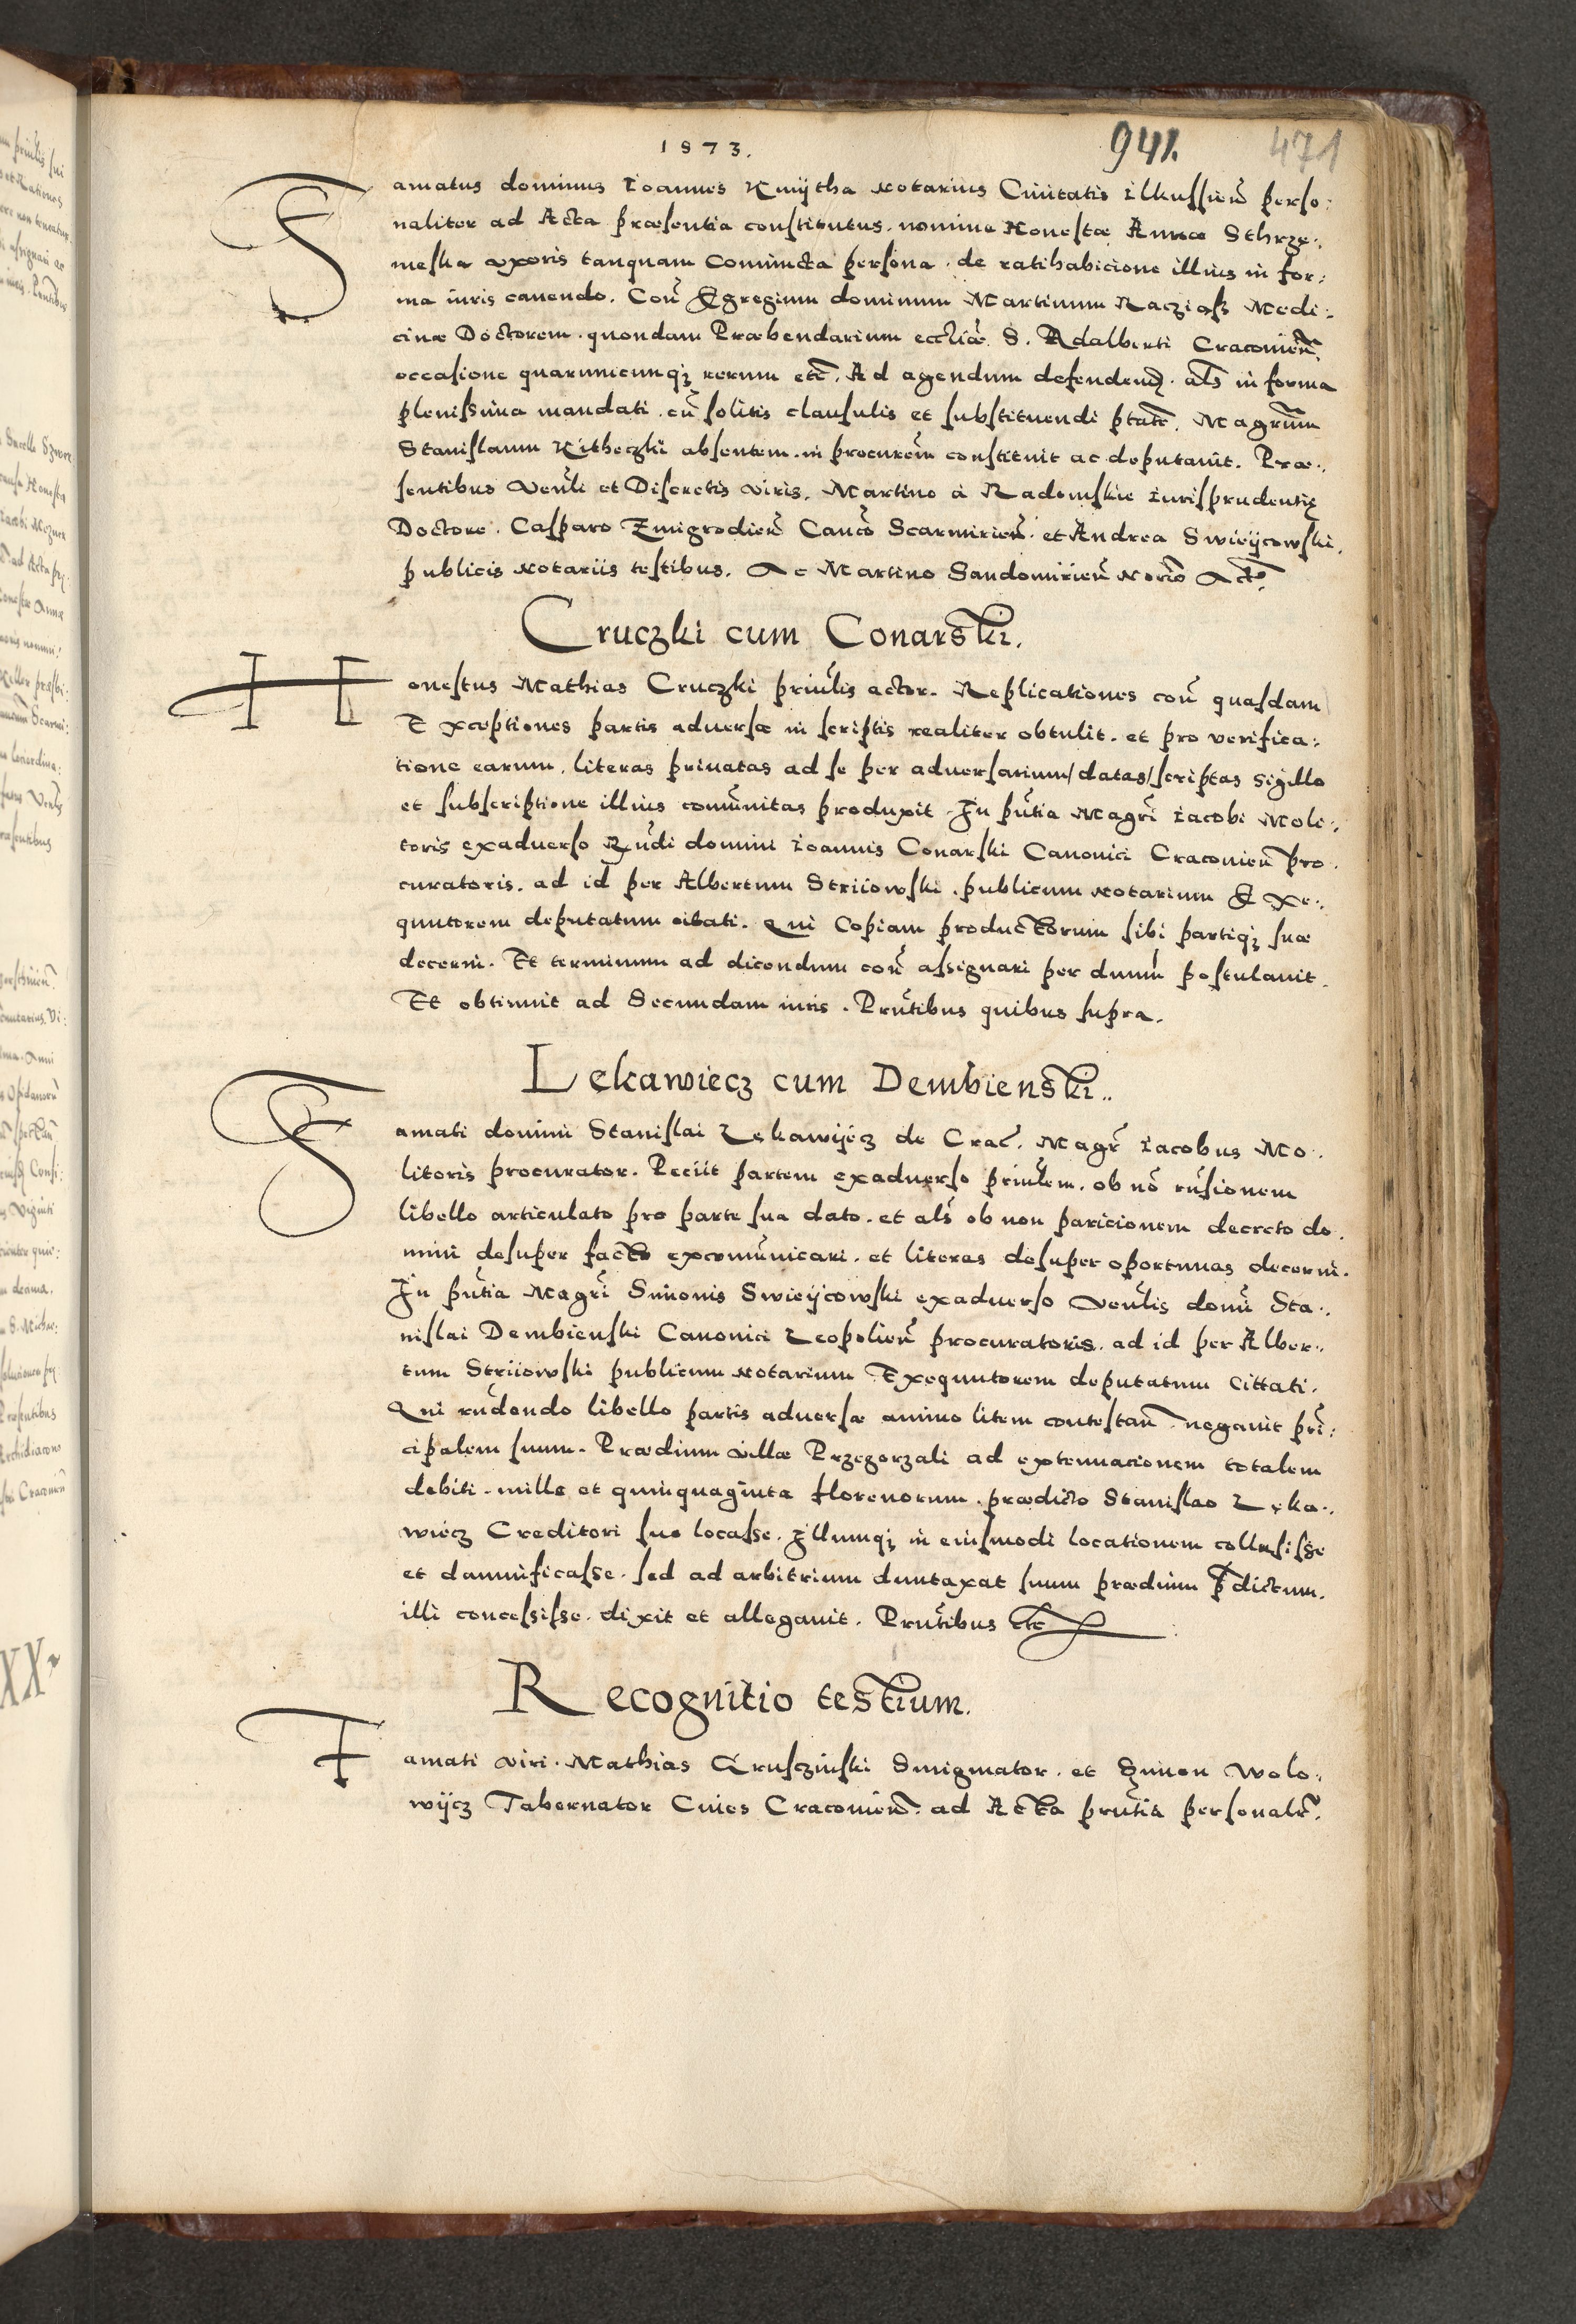 1573.
941. 471
Famatus dominus Ioannes Kmijtha Notarius Ciuitatis Ilkussieñ perso:
naliter ad Acta præsentia constitutus. nomine Honestæ Annæ Sthrze:,
meska vxoris tanquam Coniuncta persona. de ratihabicione illius in for:
ma iuris cauendo. Coñ Egregium dominum Martinum Raczions Medi:
cinæ Doctorem. quondam Præbendarium eccliæ S. Adalberti Cracouieñ.
occasione quarumcunqꝫ rerum etc̃. Ad agendum defendenđ. als̃ in forma
plenissima mandati. cũ solitis clausulis et substituendi ptate. Magrum
Stanislaum Kitheczki absentem. in procurem̃ constituit ac deputauit. Præ:,
sentibus Veñli et Discretis viris. Martino à Radomskie Iurisprudentię
Doctore. Casparo Zmigrodieñ Canco Scarmirieñ. et Andrea Swieijcowski.
publicis Notariis testibus. Ac Martino Sandomirieñ Norio Act.
Cruczki cum Conarski.
Honestus Mathias Cruczki priulis actor. Replicationes coñ quasdam
Exceptiones partis aduersæ in scriptis realiter obtulit. et pro verifica:
tione earum. literas priuatas ad se per aduersarium/datas/scriptas sigillo
et subscriptione illius comũnitas produxit. In pñtia Magri Iacobi Moli:,
toris exaduerso Rñdi domini Ioannis Conarski Canonici Cracouieñ pro.
curatoris. ad id per Albertum Striiowski. publicum Notarium Exe:,
quutorem deputatum citati. Qui Copiam productorum sibi partiqꝫ suæ
decerni. Et terminum ad dicendum coñ assignari per dnum postulauit.
Et obtinuit ad Secundam iuris. Prñtibus quibus supra.
Lekawiecz cum Dembienski..
Famati domini Stanislai Lękawijecz de Crac. Magr Iacobus Mo.
litoris procurator. Peciit partem exaduerso priulem. ob nõ rñsionem
libello articulato pro parte sua dato. et als̃ ob non paricionem decreto do.
mini desuper facto excomũnicari. et literas desuper oportunas decerni.
In pñtia Magri Simonis Swieijcowski exaduerso Venlis domi Sta:,
nislai Dembienski Canonici Leopolieñ procuratoris. ad id per Alber:,
tum Striiowski publicum Notarium Exequutorem deputatum Cittati.
Qui rñdendo libello partis aduersæ animo litem contestañ. negauit prĩ:
cipalem suum. Prædium villæ Przegorzali ad extenuacionem totalem
debiti. mille et quinquaginta florenorum. prædicto Stanislao Lęka:,
wiecz Creditori suo locasse. Illumqꝫ in eiusmodi locationem collusisse
et damnificasse. sed ad arbitrium duntaxat suum prædium p̃dictum.
illi concessisse. dixit et allegauit. Prñtibus etc
Recognitio testium.
Famati viri. Mathias Grusczinski Smigmator. et Simon Wolo:,
wijcz Tabernator Ciues Cracouieñ. ad Acta prñtia personalr̃.